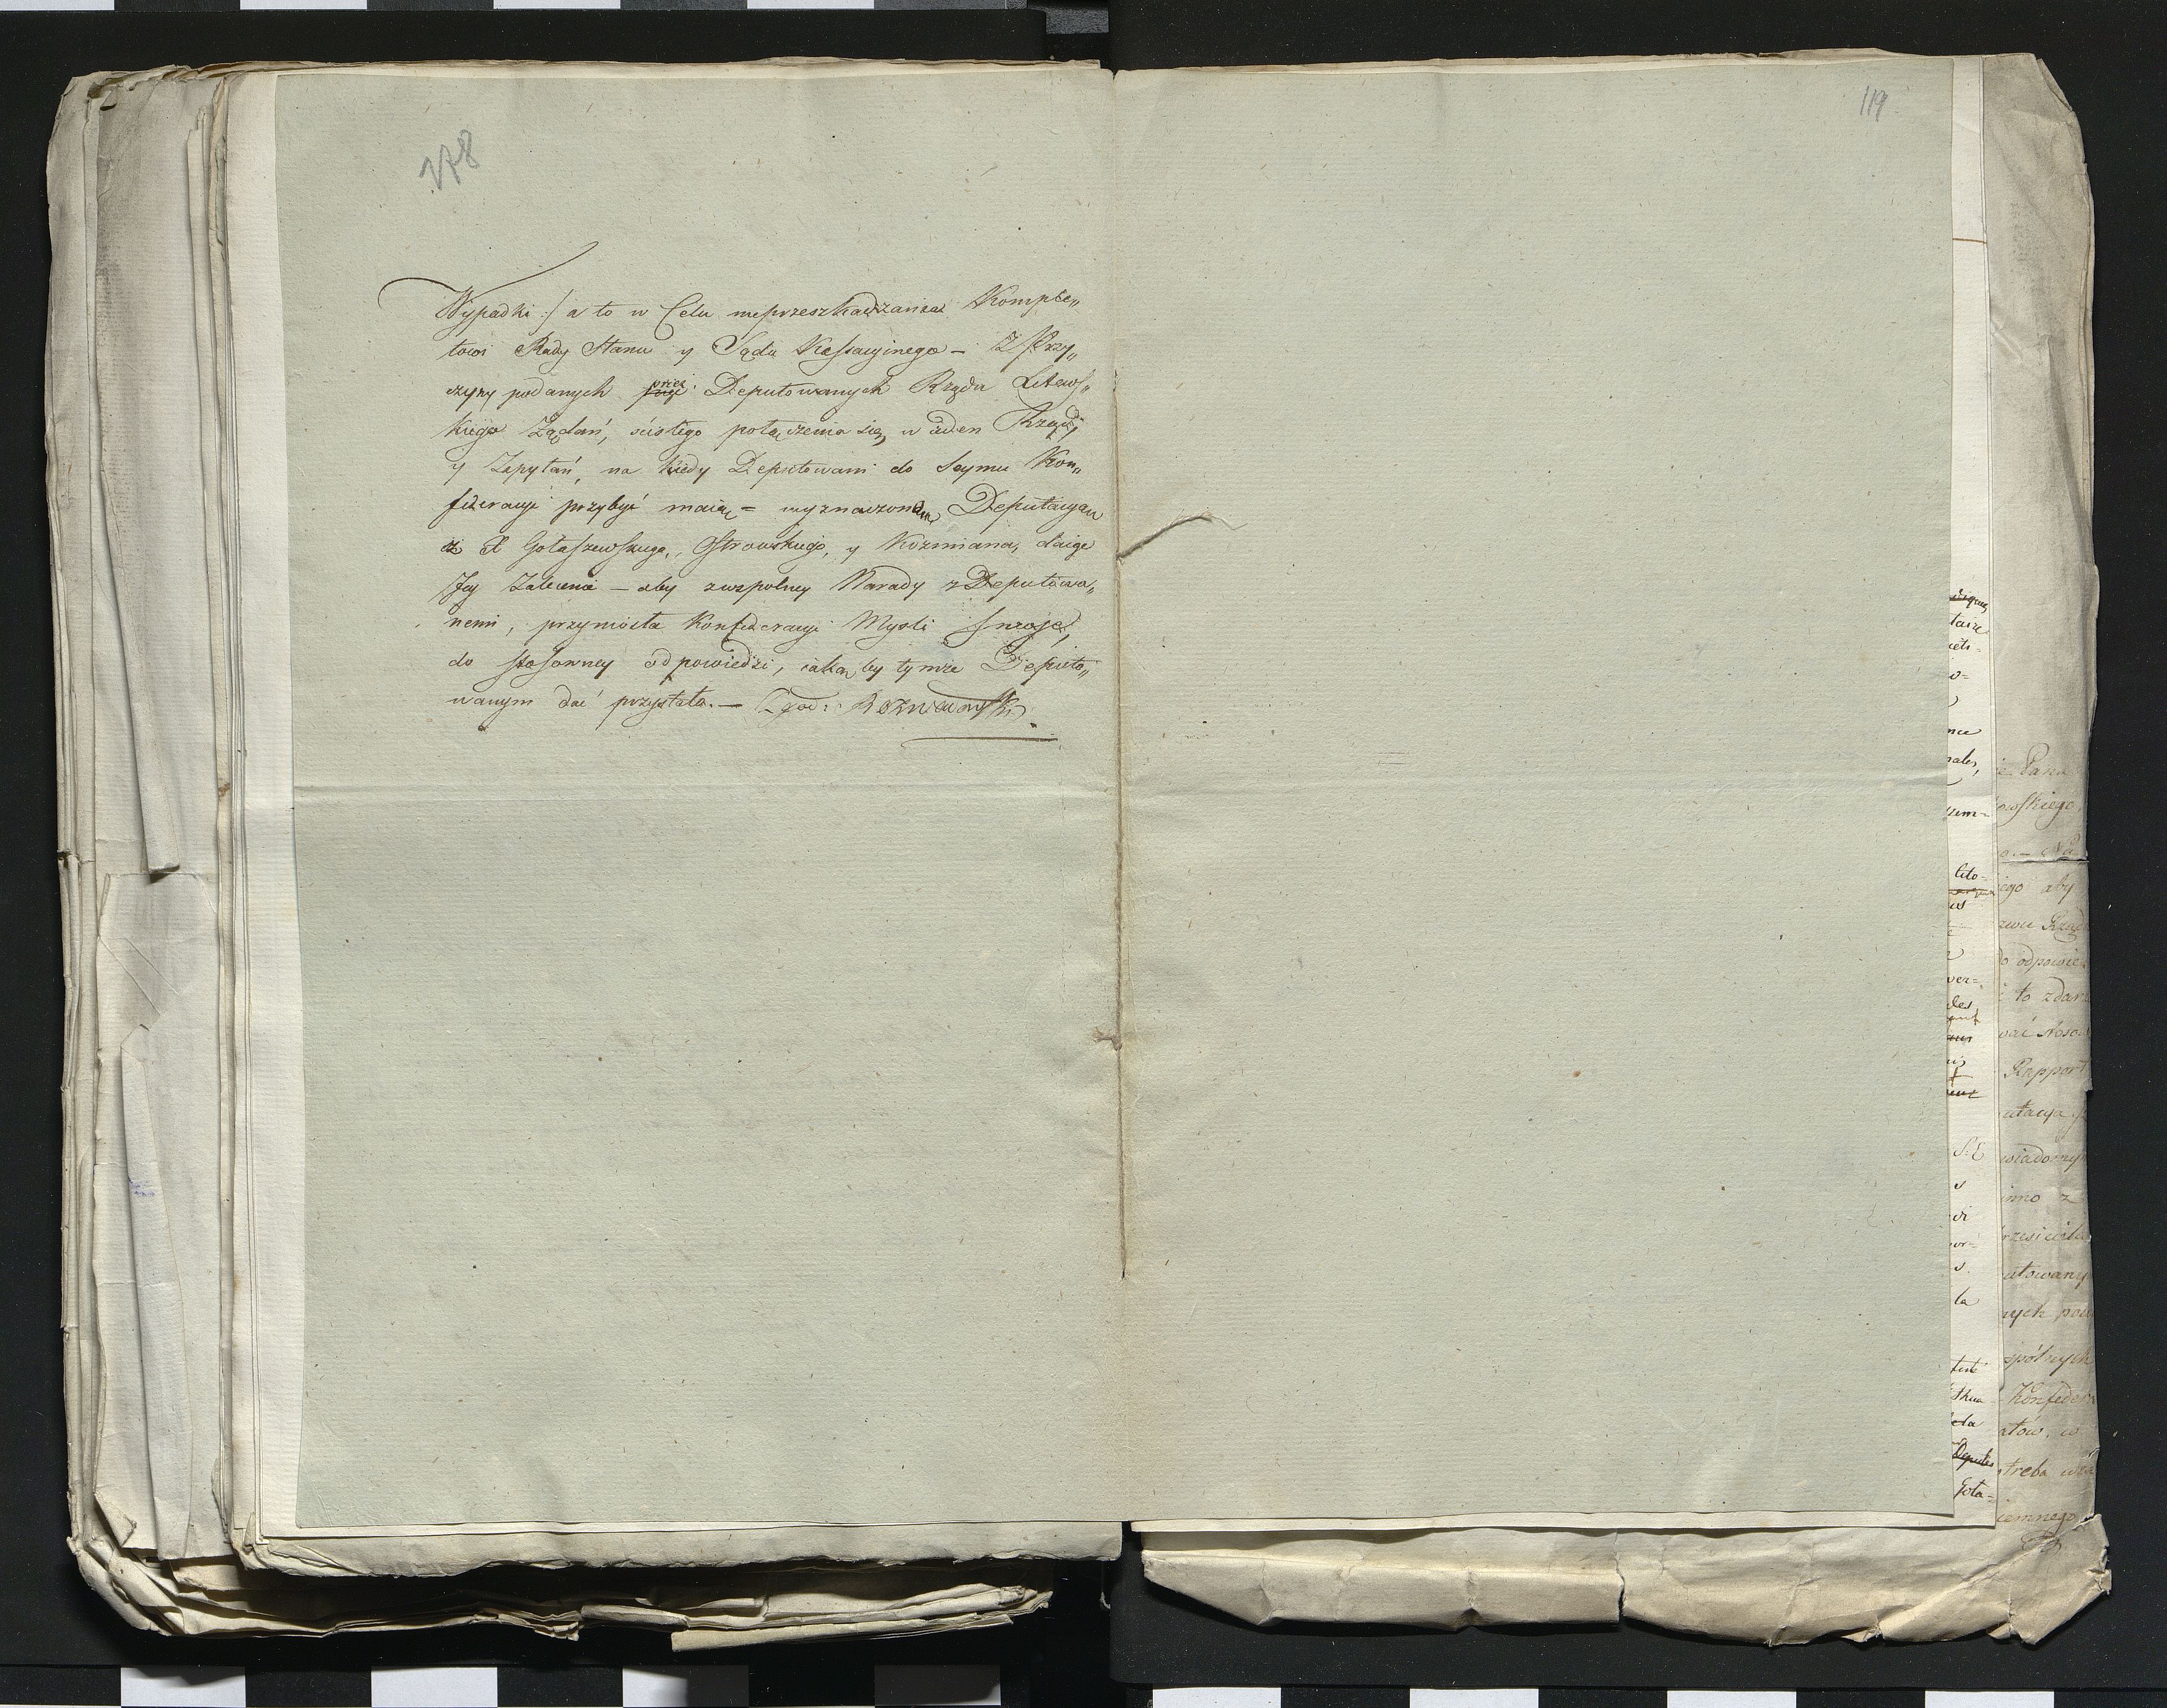 278
119
Wypadki :/ a to w Celu nieprzeszkadzania Komple„
towi Rady Stanu y Sądu Kassacyinego — Z Przy„
czyny podanych przez Deputowanych Rządu Litews„
kiego Żądań, ścisłego połączenia się w ieden Rząd;
y Zapytań, na kiedy Deputowani do Seymu Kon„
federacyi przybyć maią = wyznaczona Deputacya
z X Gołaszewskiego, Ostrowskiego, y Kozmiana, daige
Jey Zalecenie — aby zwspolney Narady z Deputowa„
nemi, przyniosła Konfederacyi Mysli swoje,
do stosowney odpowiedzi, iaką by tymże Deputo„
wanym dać przystało. — Zgod: Rozwadowski
ie Pana
owskiego
o. — Na
iego aby
do odpowie
to zdar
Rapport
utacya
wiadomy
utowany
spólnych
Konfeder
łów, w
treba
iemnego
taire
nce
lito=
ver=
des
la
Deputés
Gola=